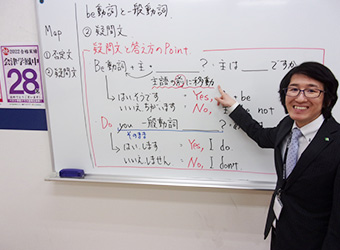 be動詞と一般動詞
Map
① 否定文
② 疑問文
② 疑問文
疑問文と答え方のPoint
Be動詞 + 主 ? ・主は ですか
主語の前に移動
はい、そうです Yes, be
いいえ、ちがいます No, not
Do you 一般動詞 ?
そのまま
はい、します Yes, I do
いいえ、しません No, I don't
2022合格実績
会津学鳳中
28名